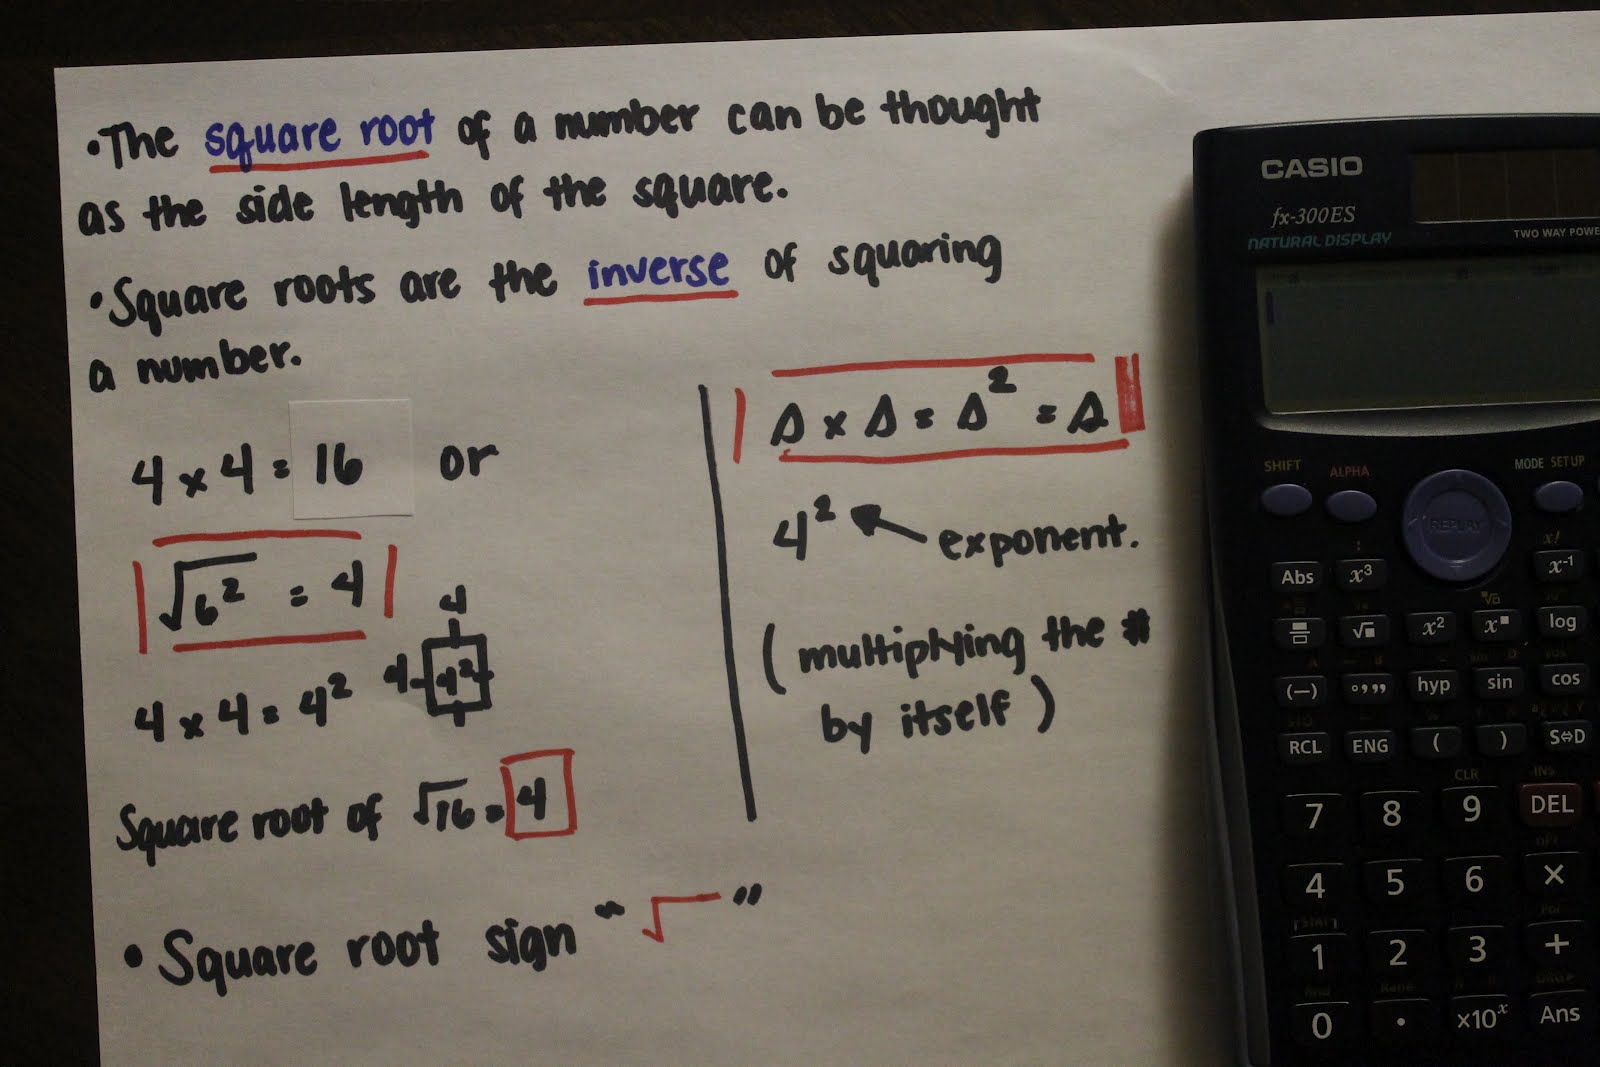 •The square root of a number can be thought
as the side length of the square.
•Square roots are the inverse of squaring
a number.
4 x 4 = 16 or
√6² = 4
4 x 4 = 4²
4
4 4²
Square root of √16 = 4
• Square root sign "√"
Δ x Δ = Δ² = Δ
4² exponent.
(multiplying the #
by itself)
CASIO
fx-300ES
NATURAL DISPLAY
TWO WAY POWE
SHIFT ALPHA MODE SETUP
REPLAY
x!
Abs x³ x⁻¹
√■ x² x■ log
(−) °,,, hyp sin cos
RCL ENG ( ) S⇔D
CLR INS
7 8 9 DEL
4 5 6 ×
1 2 3 +
0 . ×10ˣ Ans